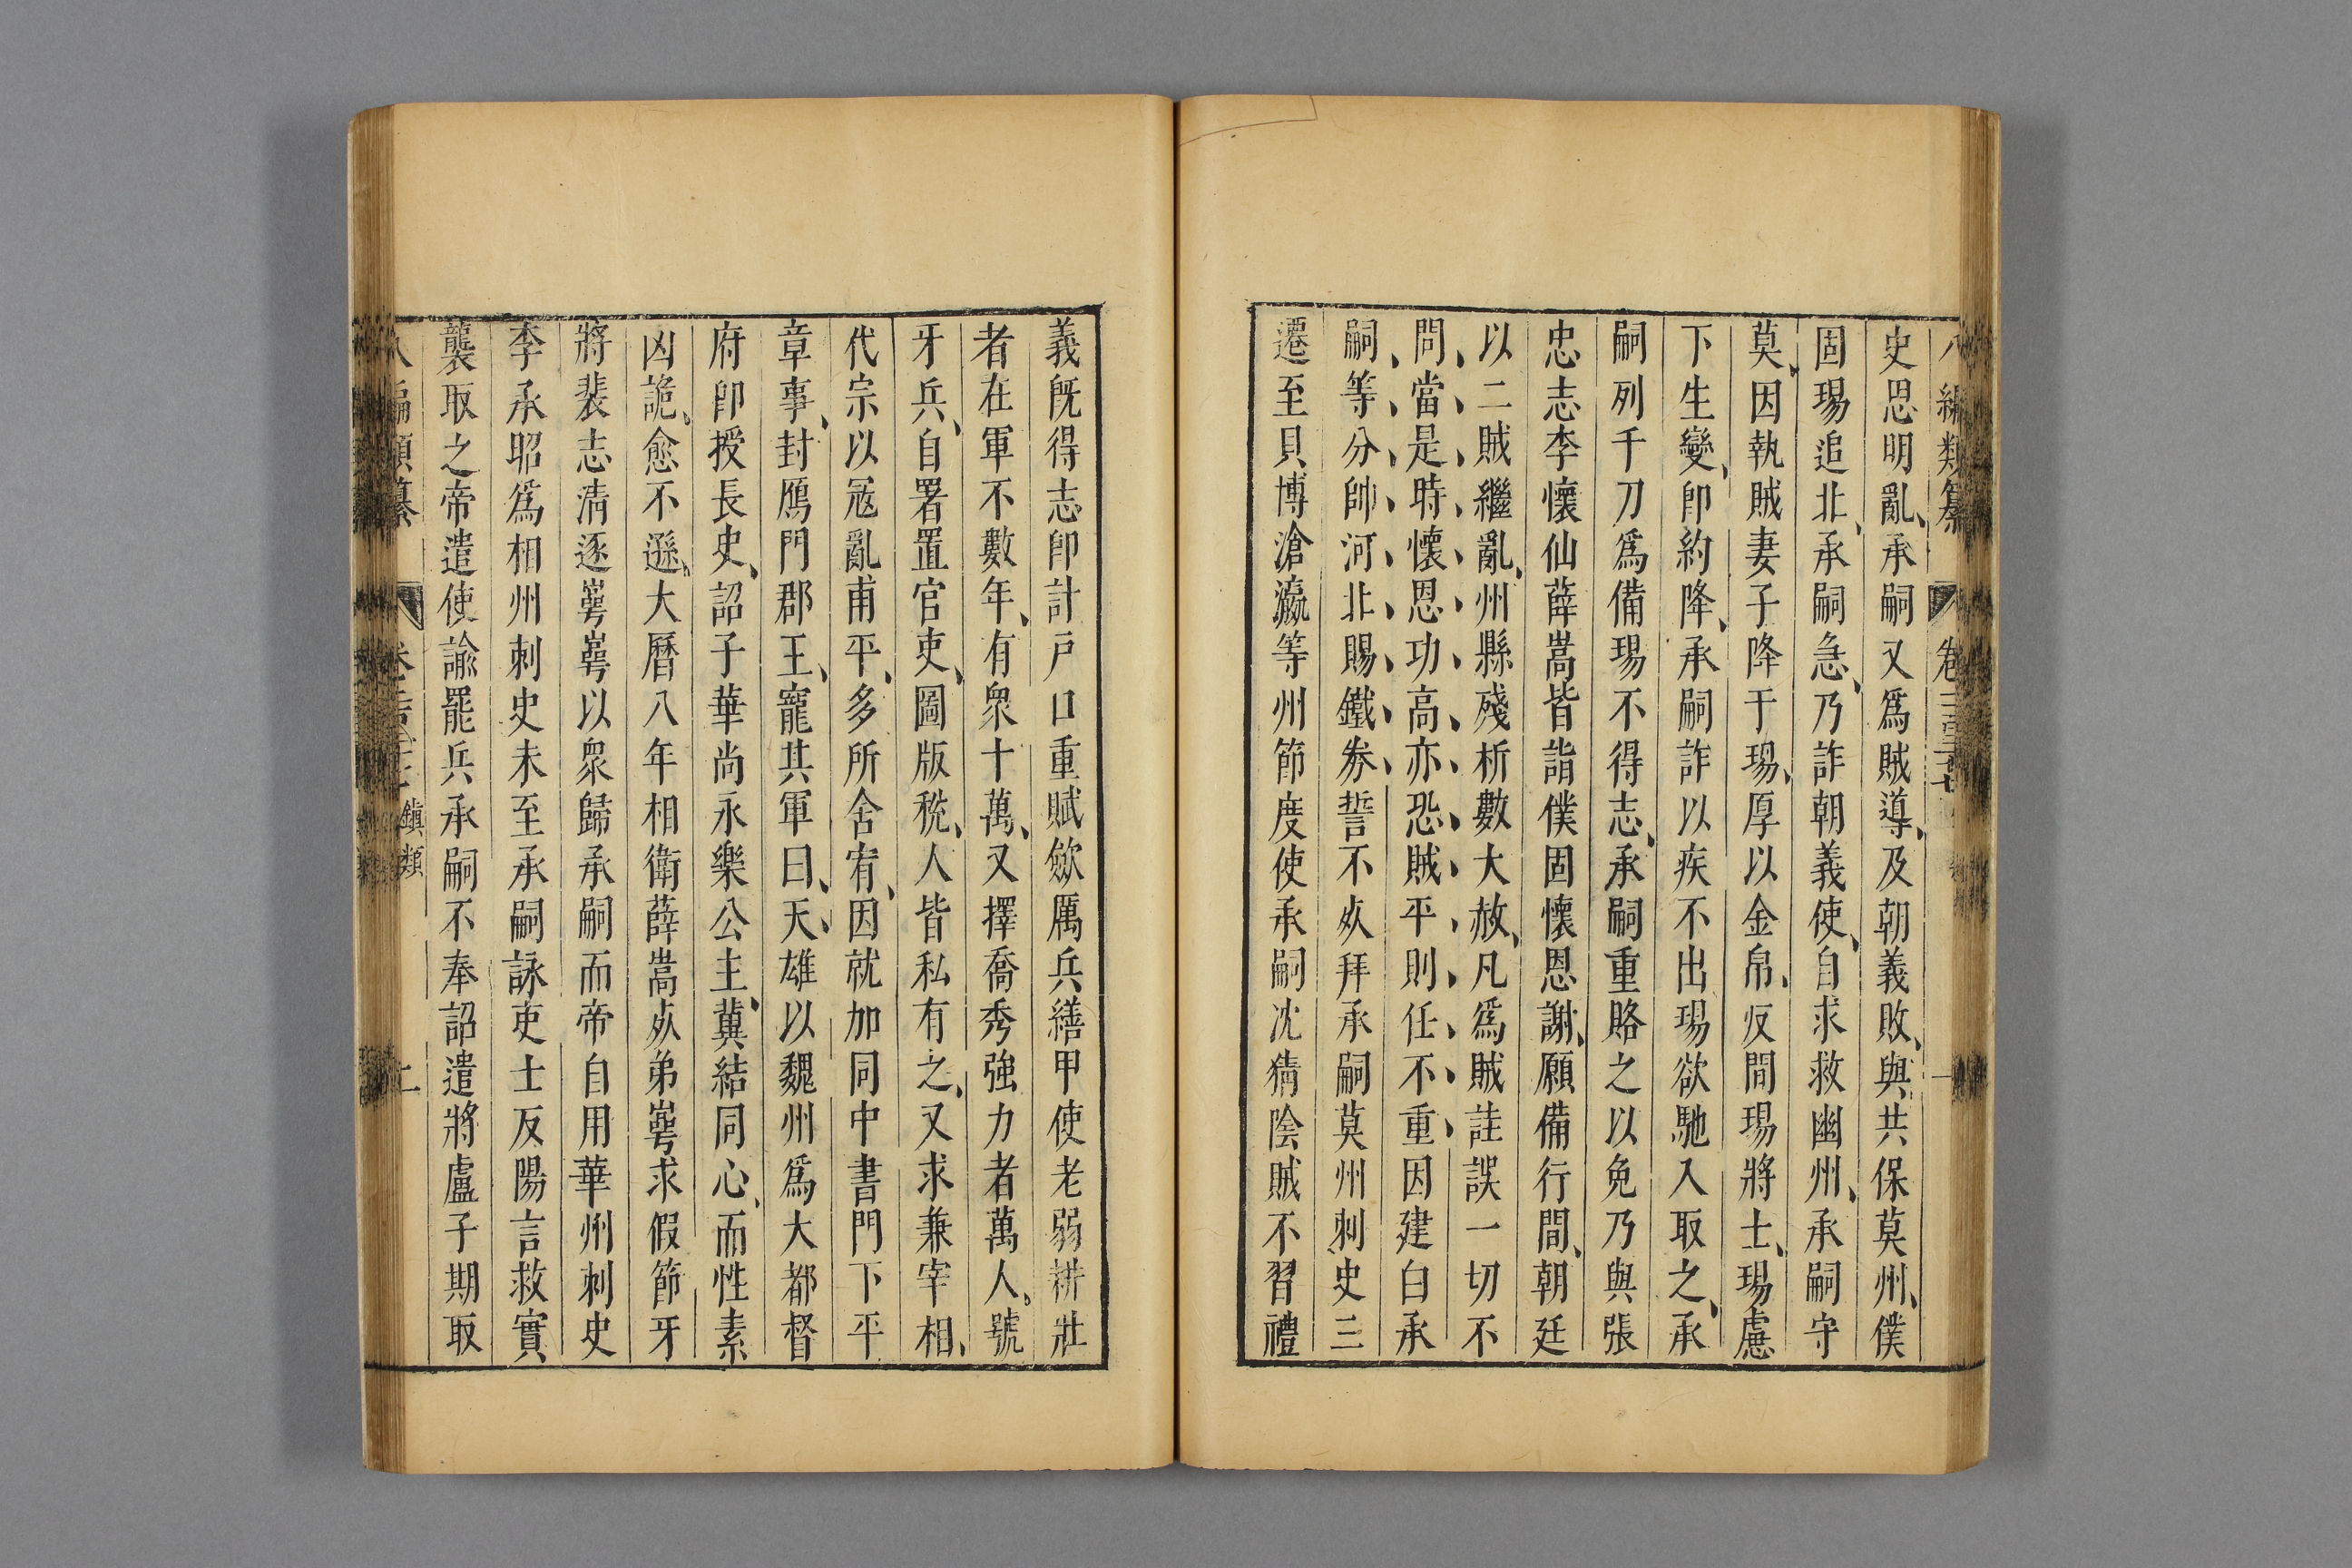 編類纂 卷二百三十七
史思明亂、承嗣又爲賊導、及朝義敗、與共保莫州、僕
固瑒追北、承嗣急、乃詐朝義使、自求救幽州、承嗣守
莫、因執賊妻子降于瑒、厚以金帛、反間瑒將士、瑒慮
下生變、卽約降、承嗣詐以疾不出瑒欲馳入取之、承
嗣列千刀爲備瑒不得志、承嗣重賂之以免乃與張
忠志李懷仙薛嵩皆詣僕固懷恩謝、願備行間、朝廷
以二賊繼亂、州縣殘析數大赦、凡爲賊詿誤一切不
問、當、是、時、懷、恩、功、高、亦、恐、賊、平、則、任、不、重、因建白承
嗣、等、分、帥、河、北、賜、鐵、券、誓不𣦸拜承嗣莫州刺史三
遷至貝博滄瀛等州節度使承嗣沈猜陰賊不習禮
義旣得志卽計戶口重賦斂厲兵繕甲使老弱耕壯
者在軍不數年、有衆十萬、又擇喬秀強力者萬人。號
牙兵、自署置官吏、圖版稅、人皆私有之、又求兼宰相、
代宗以寇亂甫平、多所含宥、因就加同中書門下平
章事、封鴈門郡王、寵其軍曰、天、雄以魏州爲大都督
府卽授長史、詔子華尚永樂公主、冀結同心、而性素
凶詭、愈不遜、大曆八年相衛薛嵩𣦸弟蕚求假節牙
將裴志淸逐蕚蕚以衆歸承嗣而帝自用華州刺史
李承昭爲相州刺史未至承嗣詠吏士反陽言救實
襲取之帝遣使諭罷兵承嗣不奉詔遣將盧子期取
八編類纂 鎭類 二